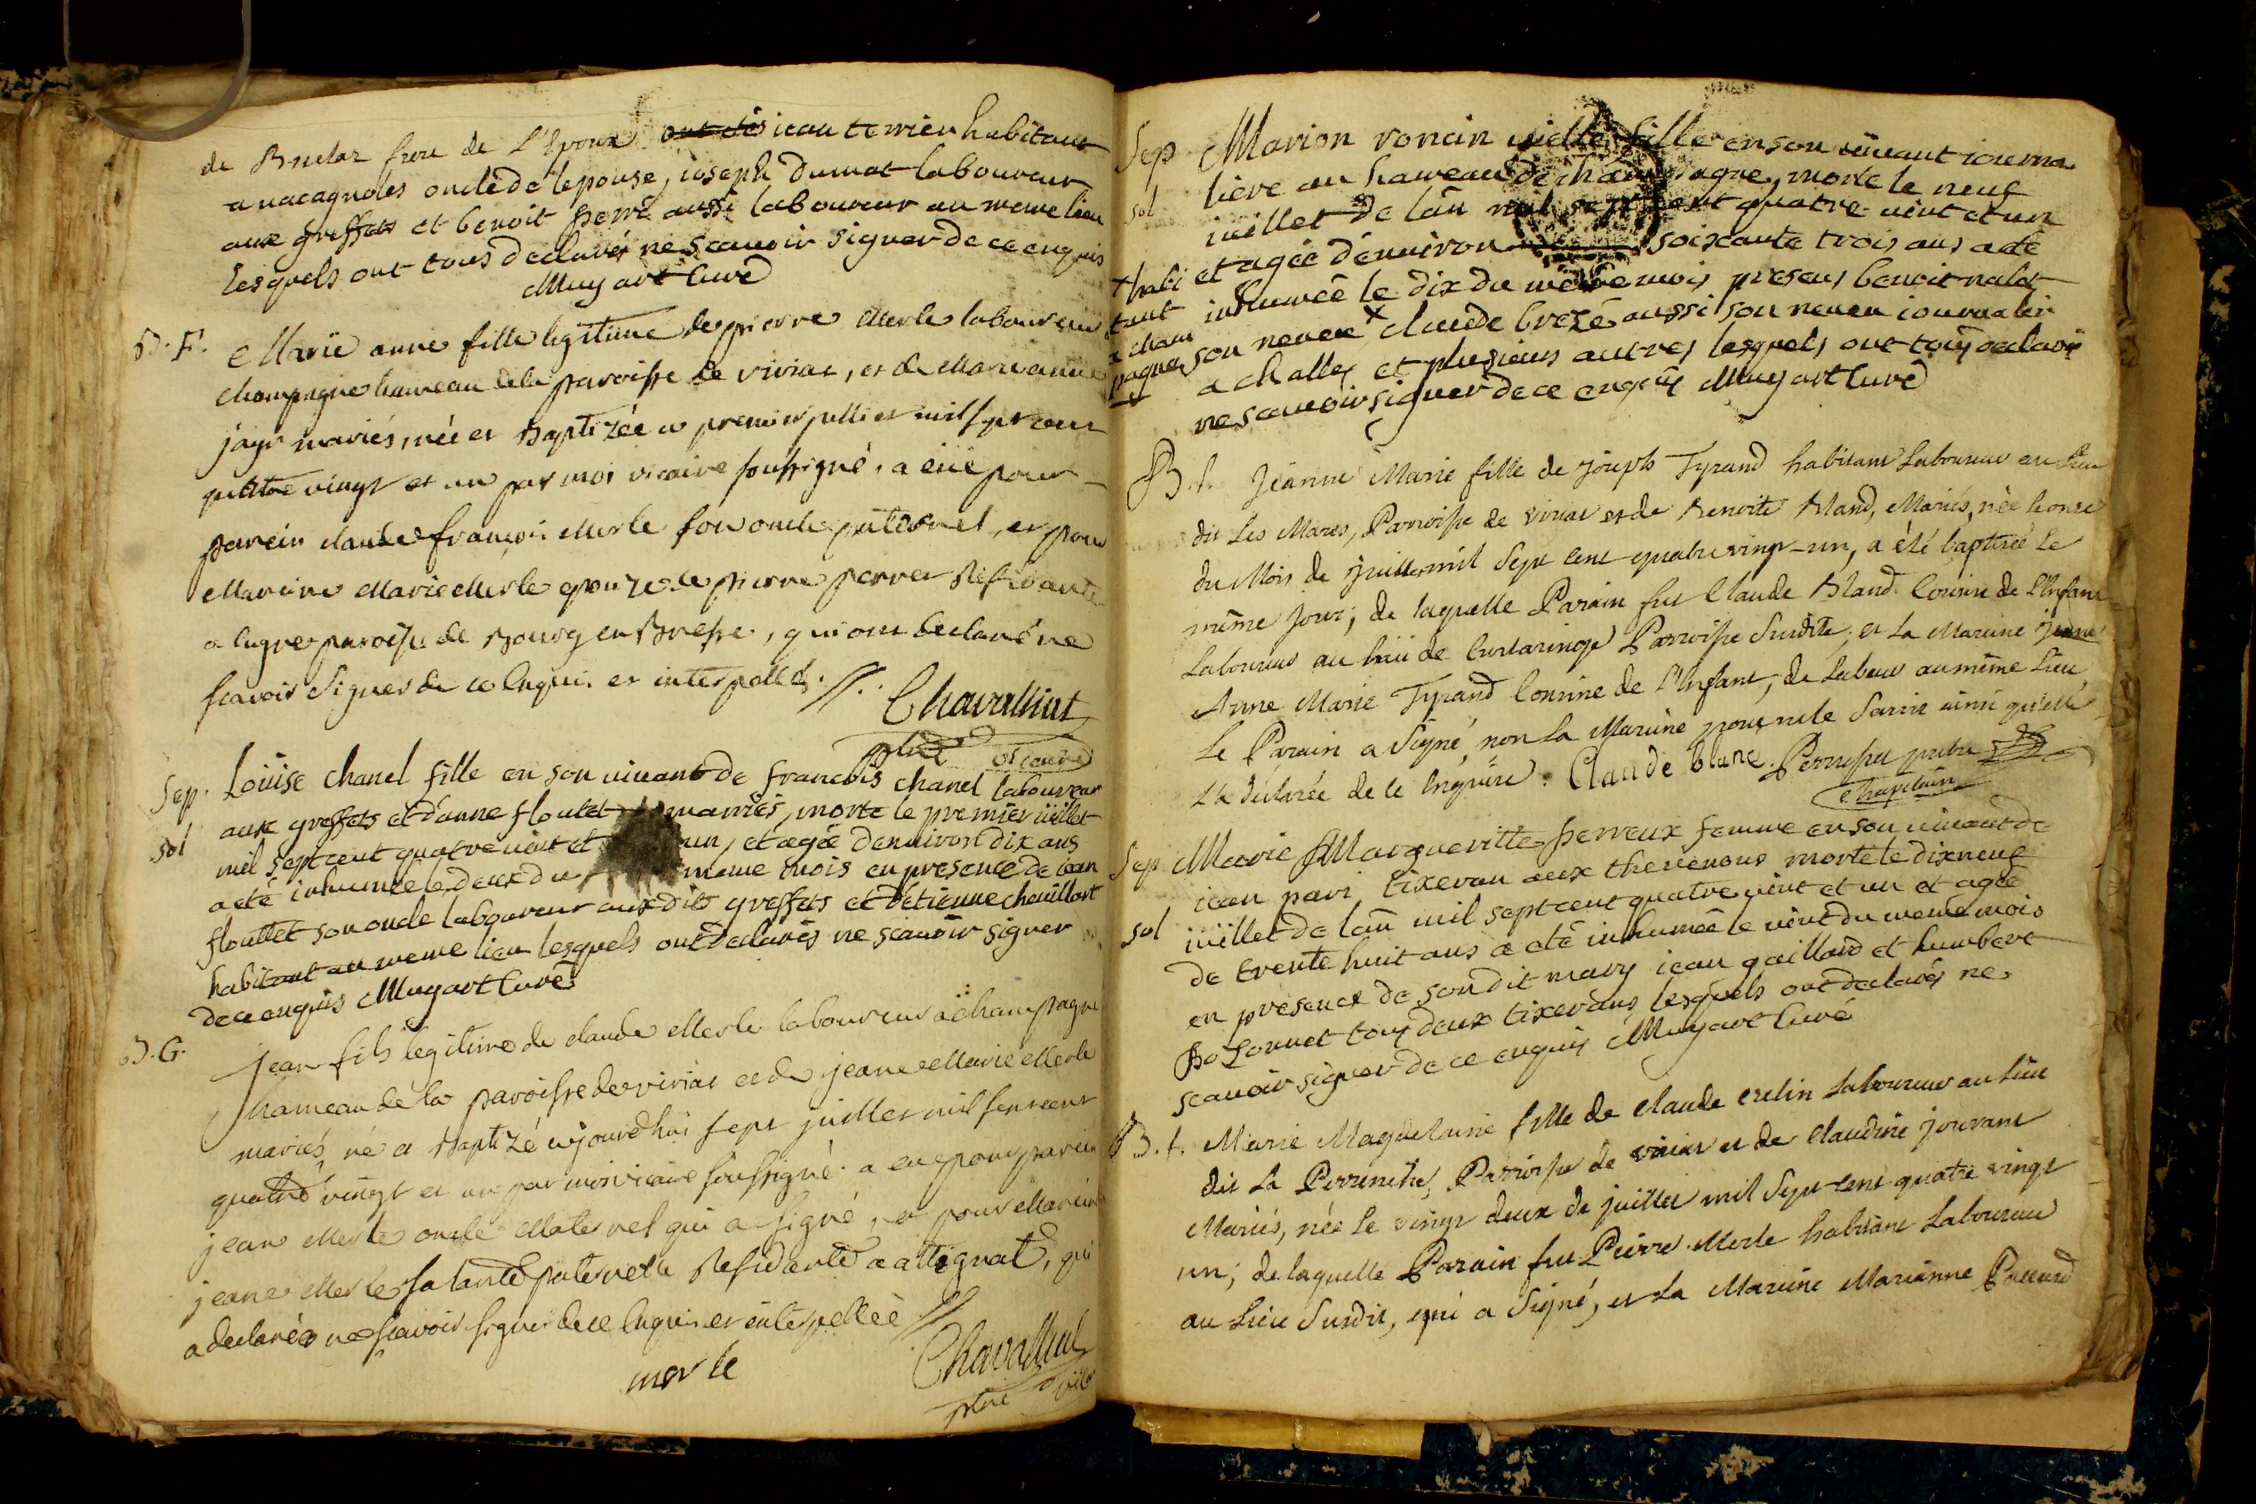 de frere de L'Epoux jean terrier habitant
a nacagnoles oncle de lepouse, joseph dumat laboureur
aux greffets et benoit perré aussi laboureur au meme lieu
Lesquels ont tous declarés ne scauoir signer de ce enquis
Muyart Curé
B. F. Marie anne fille legitime de pierre Merle laboureur
champagne hameau de la paroisse de viriat, et de Marianne
jayr mariés, née et baptizée ce premier juillet mil sept cent
quatre vingt et un par moi vicaire soussigné, a eüe pour
parein claude françois Merle son oncle paternel, et pour
Mareine Marie Merle epouze de pierre perret Residante
a lugne paroisse de bourg en bresse, qui ont declaré ne
scavoir signer de ce Enquis et interpellés.
Chavalliat
ptre vicaire
Sep. Loüise chanel fille en son uiuant de francois chanel laboureur
sol aux greffets et d'anne floutet mariés, morte le premier iüillet
mil sept cent quatre uint et un, et agée denuiron dix ans
a eté inhumée le deux du meme mois en presence de iean
flouttet son oncle laboureur aux dits greffets et d'etienne chauillart
habitant au meme lieu lesquels ont declarés ne scauoir signer
de ce enquis Muyart Curé
B. G. Jean fils legitime de claude Merle laboureur a champagne
hameau de la paroisse de viriat et de jeane Marie Merle
mariés, né et baptizé aujourdhui sept juillet mil sept cent
quatre vingt et un par moi vicaire soussigné. a eu pour parein
jean Merle oncle Maternel qui a signé, et pour Mareine
jeane Merle sa tante paternelle Residante a attignat, qui
a declarée ne scavoir signer de ce Enquis et interpellée
merle Chavalliat
ptre vic
Sep Marion roncin uielle fille en son uiuant iourna
sol liere au hameau de champagne, morte le neuf
iuillet de lan mil sept cent quatre uint et un
et agée d'enuiron soixante trois ans a eté
inhumée le dix du meme mois presens benoit nalet
+ habitant a champagne
son neueu x claude brezé aussi son neueu iournalier
a challes et plusieurs autres lesquels ont tous declaré
ne scauoir signer de ce enquis Muyart Curé
B. f. Jeanne Marie fille de Joseph Tyrand habitant Laboureur au Lieu
dit Les Mares, Parroisse de viriat et de Benoite Bland, Mariés, née le onze
du Mois de Juillet mil Sept Cent quatre vingt-un, a été baptisée Le
même Jour; de laquelle Parain fut Claude Bland Cousin de L'Enfant
Laboureur au lieu de Curtaringe Parroisse Susdite, et La Maraine
Anne Marie Tyrand Cousine de L'Enfant, de Labeur au même Lieu
Le Parain a Signé, non La Maraine pour ne le Savoir ainsi qu'elle
L'a déclarée de ce Enquise. Claude Blanc. prêtre
Chapelain
Sep Marie Margueritte perreux femme en son uiuant de
iean pari tixeran aux theuenons morte le dixneuf
sol iüillet de lan mil sept cent quatre uint et un et agée
de trente huit ans a eté inhumée le uint du meme mois
en presence de son dit mary iean gaillard et humbert
bozonnet tous deux tixerans lesquels ont declarés ne
scauoir signer de ce enquis Muyart Curé
B. f. Marie Magdelaine fille de Claude Crelin Laboureur au Lieu
dit La Perrinche, Parroisse de viriat et de Claudine Jouvant
Mariés, née Le vingt deux de juillet mil Sept cent quatre vingt
un; de laquelle Parain fut Pierre Merle habitant Laboureur
au Lieu Susdit, qui a Signé, et La Maraine Marianne